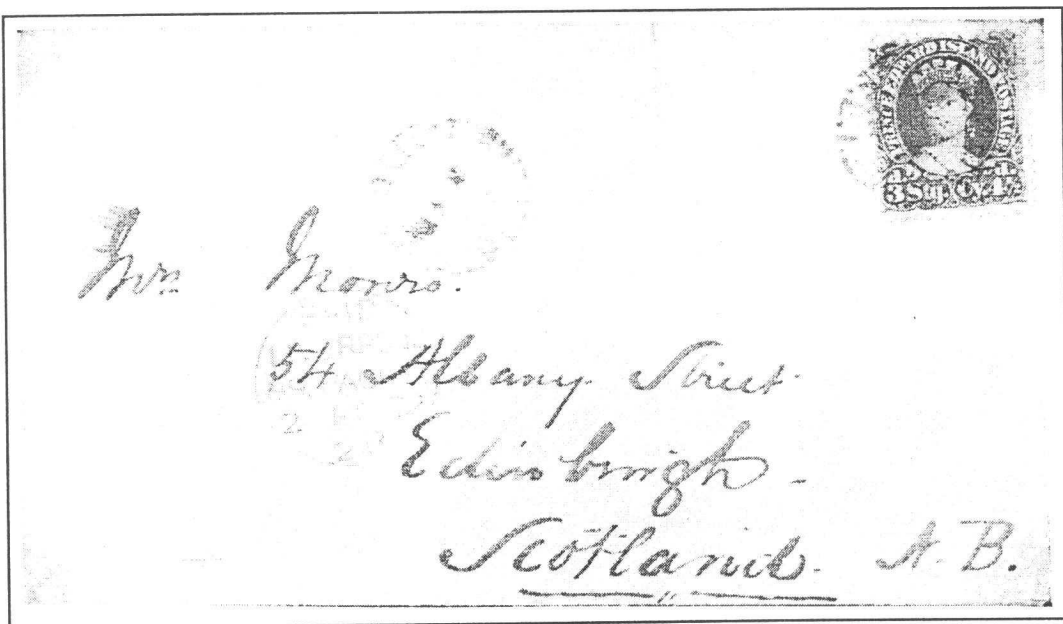 PRINCE EDWARD ISLAND POSTAGE
3d Stg. Cy. 4½d
Mrs Monro.
54 Albany Street
Edinburgh -
Scotland. N. B.